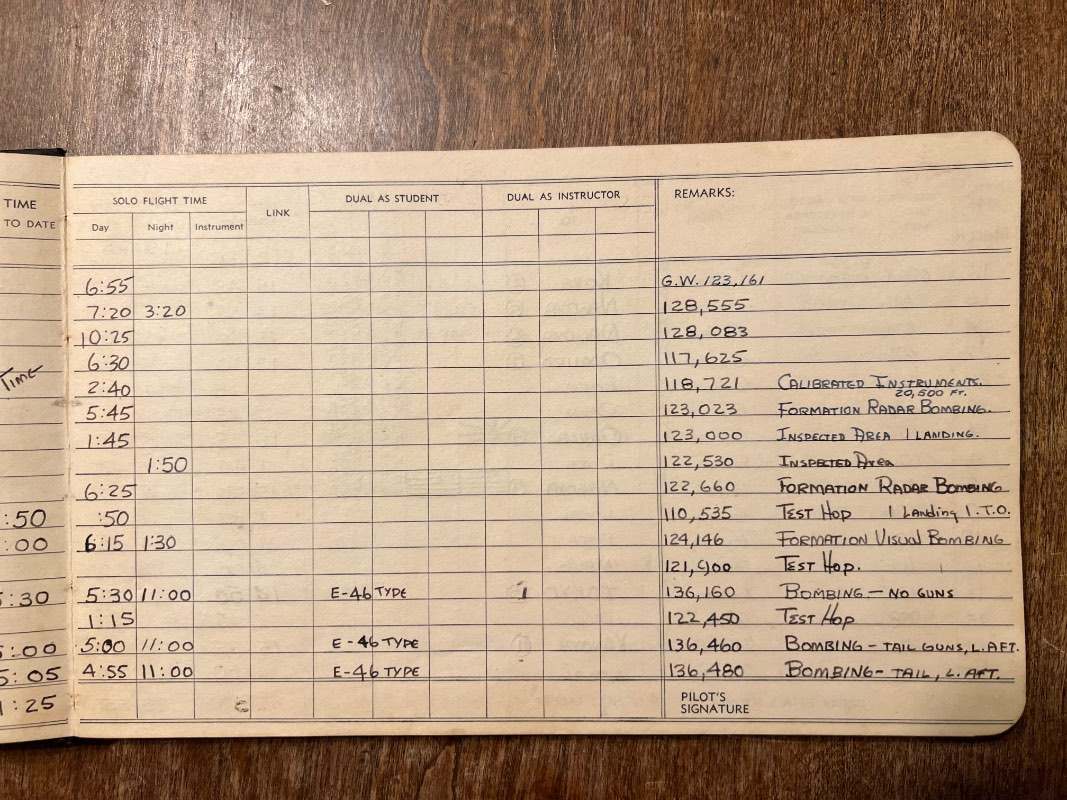 TIME
TO DATE
SOLO FLIGHT TIME LINK DUAL AS STUDENT DUAL AS INSTRUCTOR REMARKS:
Day Night Instrument
6:55 G.W. 123,161
7:20 3:20 128,555
10:25 128,083
6:30 117,625
TIME
2:40 118,721 CALIBRATED INSTRUMENTS.
20,500 FT.
5:45 123,023 FORMATION RADAR BOMBING.
1:45 123,000 INSPECTED AREA 1 LANDING.
1:50 122,530 INSPECTED AREA
6:25 122,660 FORMATION RADAR BOMBING
:50 :50 110,535 TEST HOP 1 Landing 1.T.O.
:00 6:15 1:30 124,146 FORMATION VISUAL BOMBING
121,900 TEST HOP.
5:30 5:30 11:00 E-46 TYPE 1 136,160 BOMBING - NO GUNS
1:15 122,450 TEST HOP
5:00 5:00 11:00 E-46 TYPE 136,460 BOMBING - TAIL GUNS, L. AFT.
5:05 4:55 11:00 E-46 TYPE 136,480 BOMBING - TAIL, L. AFT.
1:25 PILOT'S
SIGNATURE